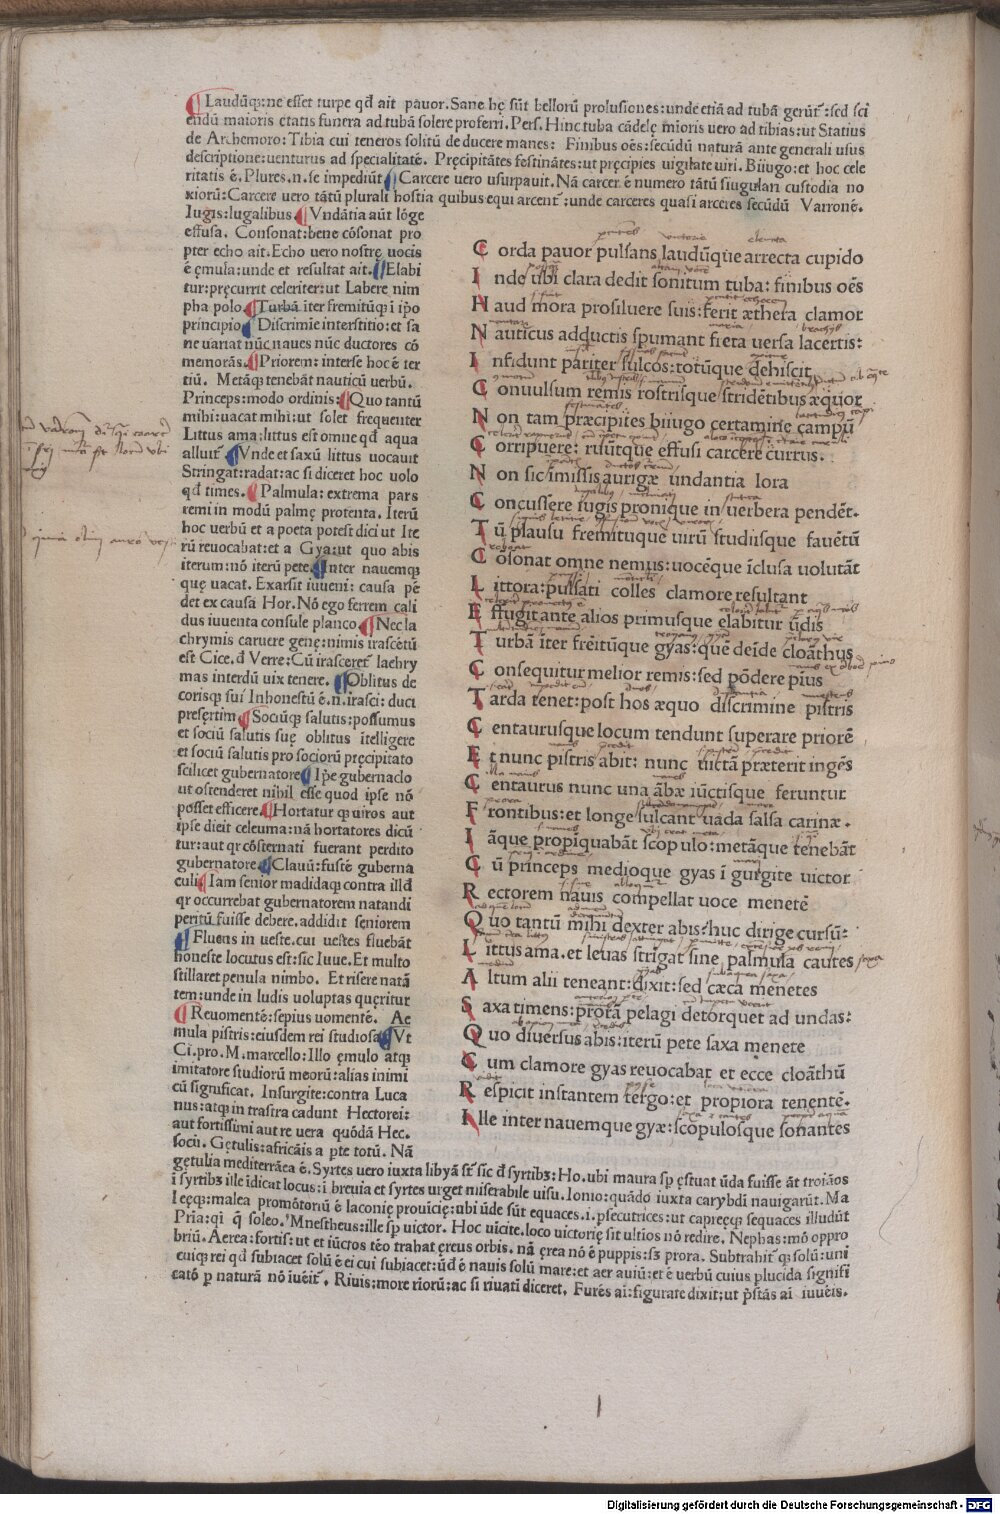 Laudūq;:ne esset turpe qđ ait pavor. Sane hę sūt bellorū prolusiones:unde etiā ad tubā gerūt:sed sci
endū maioris ętatis funera ad tubā solere proferri. Pers. Hinc tuba cādelę mīoris uero ad tibias:ut Statius
de Archemoro:Tibia cui teneros solitū deducere manes: Finibus oēs:secūdū naturā ante generali usus
descriptione:uenturus ad specialitatē. Pręcipitātes festinātes:ut pręcipies uigilate uiri. Biiugo:et hoc cele
ritatis ē. Plures.n.se impediūt Carcere uero usurpauit. Nā carcer ē numero tātū siugulari custodia no
xiorū:Carcere uero tātū plurali hostia quibus equi arcent:unde carceres quasi arceres secūdū Varronē.
Iugis:iugalibus Vndātia aūt lōge
effusa. Consonat:bene cōsonat pro
pter echo ait. Echo uero nostrę uocis
ē ęmula:unde et resultat ait. Elabi
tur:pręcurrit celeriter:ut Labere nim
pha polo. Turbā iter fremitūq; i ipo
principio Discrimīe interstitio:et sa
ne uariat nūc naues nūc ductores cō
memorās. Priorem: interse hoc ē ter
tiū. Metāq; tenebāt nauticū uerbū.
Princeps:modo ordinis: Quo tantū
mihi:uacat mihi:ut solet frequenter
Littus ama:littus est omne qđ aqua
alluit Vnde et saxū littus uocauit
Stringat:radat:ac si diceret hoc uolo
qđ times. Palmula: extrema pars
remi in modū palmę protenta. Iterū
hoc uerbū et a poeta potest dici ut Ite
rū reuocabat:et a Gya:ut quo abis
iterum:nō iterū pete. Inter nauemq;
quę uacat. Exarsit iuueni: causa pē
det ex causa Hor. Nō ego ferrem cali
dus iuuenta consule planco. Nec la
chrymis caruere genę:nimis irascētū
est Cice. đ Verre:Cū irasceret lachry
mas interdū uix tenere. Oblitus de
corisq; sui Inhonestū ē.n.irasci: duci
presęrtim Sociūq; salutis:possumus
et sociū salutis suę oblitus ītelligere
et sociū salutis pro sociorū pręcipitato
scilicet gubernatore Ipe gubernaclo
ut ostenderet nihil esse quod ipse nō
posset efficere. Hortatur q; uiros aut
ipse dicit celeuma:nā hortatores dicū
tur:aut qr cōsternati fuerant perdito
gubernatore Clauū:fustē guberna
culi Iam senior madidaq; contra illđ
qr occurrebat gubernatorem natandi
peritū fuisse debere.addidit seniorem
Fluens in ueste.cui uestes fluebāt
honeste locutus est:sic Iuue. Et multo
stillaret penula nimbo. Et risere natā
tem:unde in ludis uoluptas quęritur
Reuomentē:sępius uomentē. Ae
mula pistris:eiusdem rei studiosa Vt
Ci.pro. M. marcello: Illo ęmulo atq;
imitatore studiorū meorū:alias inimi
cū significat. Insurgite:contra Luca
nus:atq; in trastra cadunt Hectorei:
aut fortissimi aut re uera quōdā Hec.
socii. Gętulis:africāis a pte totū. Nā
gętulia mediterrāea ē. Syrtes uero iuxta libyā st sic đ syrtibȝ:Ho.ubi maura sp ęstuat ūda fuisse āt troiāos
ī syrtibȝ ille īdicat locus:ī breuia et syrtes urget miserabile uisu. Ionio:quādo iuxta carybdī nauigarūt. Ma
leęq;:malea promōtoriū ē laconię prouicię:ubi ūde sūt equaces.i.psecutrices:ut capreęq; sequaces illudūt
Pria:qi q soleo. Mnestheus:ille sp uictor. Hoc uīcite.loco uictorię sit ultīos nō redire. Nephas:mō oppro
briū. Aerea:fortis:ut et iūctos tēo trahat ęreus orbis. nā ęrea nō ē puppis:sȝ prora. Subtrahit q; solū:uni
cuiq; rei qđ subiacet solū ē ei cui subiacet:ūđ ē nauis solū mare:et aer auiū:et ē uerbū cuius plucida signifi
catō p naturā nō iuēit. Riuis:more riorū:ac si riuati diceret. Furēs ai:figurate dixit;ut pstās ai iuuēis.
Corda pauor pulsans laudūque arrecta cupido
Inde ubi clara dedit sonitum tuba: finibus oēs
Haud mora prosiluere suis:ferit æthera clamor
Nauticus adductis spumant freta uersa lacertis:
Infidunt pāriter sulcos:totūque dehiscit
Conuulsum remis rostrisque stridētibus æquor
Non tam præcipites biiugo certamine campū
Corripuere: ruūtque effusi carcere currus.
Non sic imissis aurigæ undantia lora
Concussere iugis pronique in uerbera pendēt.
Tū plausu fremituque uirū studiisque fauētū
Cōsonat omne nemus:uocēque īclusa uolutāt
Littora:pulsati colles clamore resultant
Effugit ante alios primusque elabitur ūdis
Turbā īter freītūque gyas:quē deīde cloāthus
Consequitur melior remis:sed pōdere pīus
Tarda tenet:post hos æquo discrimine pistris
Centaurusque locum tendunt superare priorē
Et nunc pistris abit: nunc uictā præterit ingēs
Centaurus nunc una ābæ iūctisque feruntur
Frontibus:et longe sulcant uada salsa carinæ.
Iāque propīquabāt scopulo:metāque tenebāt
Cū princeps medioque gyas ī gurgite uictor
Rectorem nauis compellat uoce menetē
Quo tantū mihi dexter abis?huc dirige cursū:
Littus ama.et leuas strīgat sine palmula cautes
Altum alii teneant:dixit:sed cæca menetes
Saxa timens:prorā pelagi detorquet ad undas:
Quo diuersus abis:iterū pete saxa menete
Cum clamore gyas reuocabat et ecce cloāthū
Respicit instantem tergo:et propiora tenentē.
Ille inter nauemque gyæ:scopulosque sonantes
Digitalisierung gefördert durch die Deutsche Forschungsgemeinschaft - DFG